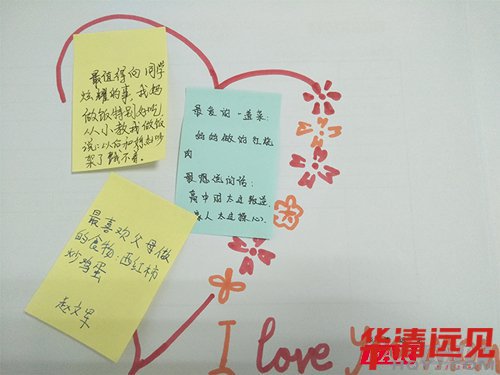 最值得向同学
炫耀的事,我妈
做饭特别好吃,
从小教我做饭
说:以后和媳妇吵
架了饿不着。
最爱的一道菜:
妈妈做的红烧
肉
最想说的话:
高中时太过叛逆,
家人太过操心。
最喜欢父母做
的食物:西红柿
炒鸡蛋
赵文
I love
华清远见